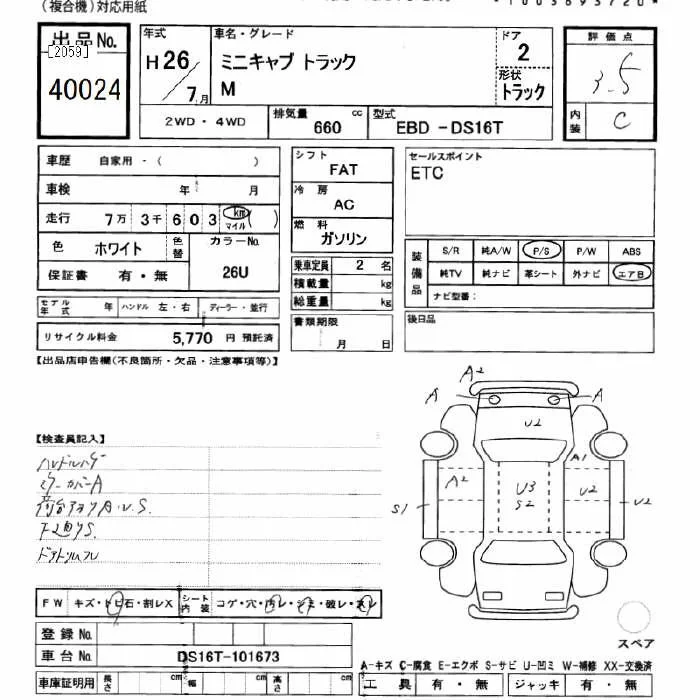 (複合機)対応用紙
出品No.
[2059]
40024
年式
H26
7月
車名・グレード
ミニキャブ トラック
M
ドア
2
形状
トラック
2WD・4WD
排気量
660
cc
型式
EBD -DS16T
評価点
3.5
内装
C
車歴 自家用 - ( )
車検 年 月
走行 7万 3千 6 0 3 km マイル ( )
色 ホワイト 色替
カラーNo.
26U
保証書 有・無
モデル年式 年 ハンドル 左・右 ディーラー・並行
リサイクル料金 5,770 円 預託済
シフト
FAT
冷房
AC
燃料
ガソリン
乗車定員 2 名
積載量 kg
総重量 kg
書類期限
月 日
セールスポイント
ETC
装備品
S/R 純A/W P/S P/W ABS
純TV 純ナビ 革シート 外ナビ エアB
ナビ型番:
後日品
【出品店申告欄(不良箇所・欠品・注意事項等)】
【検査員記入】
ハンドルハゲ
荷台アオリA.U.S.
下廻りS.
A2
A
A
U2
A1
A2
U3
S2
U2
S1
U2
FW キズ・トビ石・割レX シート内装 コゲ・穴・汚レ・シミ・破レ・スレ
登録No.
車台No. DS16T-101673
車庫証明用 長さ cm 幅 cm 高さ cm
スペア
A-キズ C-腐食 E-エクボ S-サビ U-凹ミ W-補修 XX-交換済
工具 有・無 ジャッキ 有・無